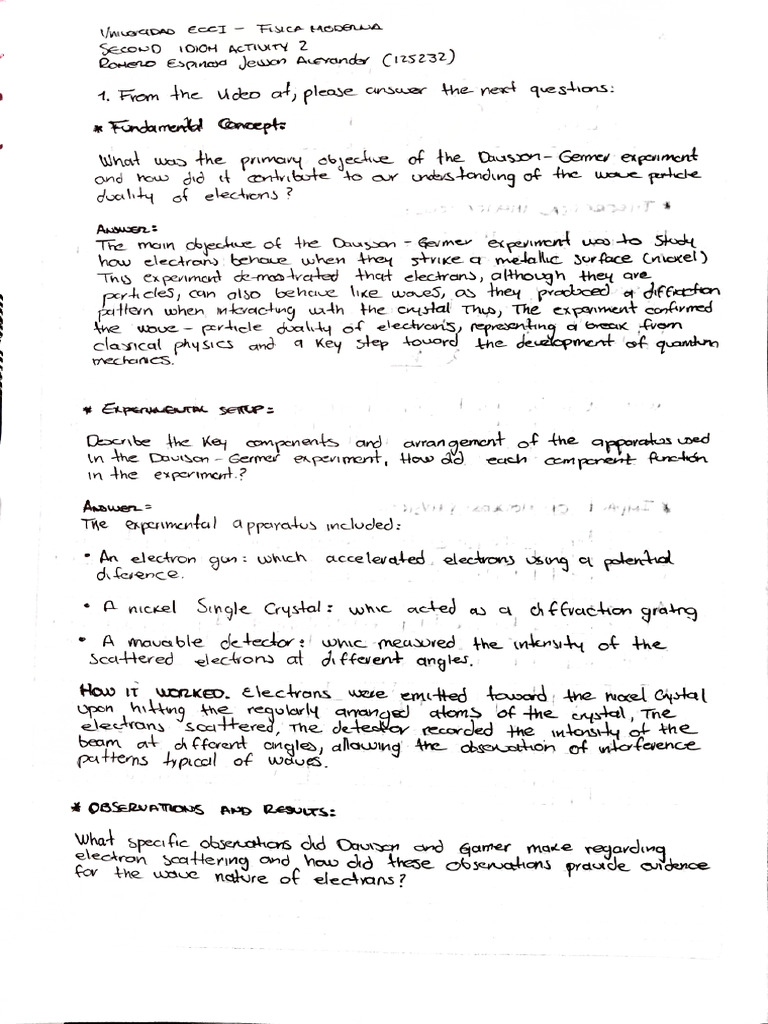 UNIVERSIDAD ECCI - FISICA MODERNA
SECOND IDIOM ACTIVITY 2
ROMERO Espinosa Jeisson Alexander (125232)
1. From the video at, please answer the next questions:
* Fundamental Concept:
What was the primary objective of the Davisson-Germer experiment
and how did it contribute to our understanding of the wave particle
duality of electrons?
ANSWER:
The main objective of the Davisson-Germer experiment was to study
how electrons behave when they strike a metallic surface (nickel)
This experiment demostrated that electrons, although they are
particles, can also behave like waves, as they produced a diffraction
pattern when interacting with the crystal Thus, The experiment confirmed
the wave-particle duality of electrons, representing a break from
classical physics and a key step toward the development of quantum
mechanics.
* EXPERIMENTAL SETUP:
Describe the Key components and arrangement of the apparatus used
in the Davison-Germer experiment, How did each component function
in the experiment?
ANSWER=
The experimental apparatus included:
• An electron gun: which accelerated electrons using a potential
diference.
• A nickel Single Crystal: whic acted as a diffraction gratng
• A movable detector: whic measured the intensity of the
scattered electrons at different angles.
HOW IT WORKED. Electrons were emitted toward the nickel Crystal
upon hitting the regularly arranged atoms of the crystal, The
electrans scattered, The detector recorded the intensity of the
beam at different angles, allowing the observation of interference
patterns typical of waves.
* OBSERVATIONS AND RESULTS:
What specific observations did Davison and Gamer make regarding
electron scattering and how did these observations provide evidence
for the wave nature of electrans?